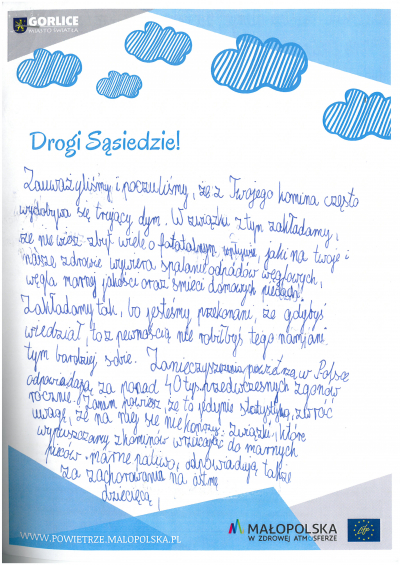 GORLICE
MIASTO ŚWIATŁA
Drogi Sąsiedzie!
Zauważyliśmy i poczuliśmy, że z Twojego komina często
wydobywa się trujący dym. W związku z tym zakładamy,
że nie wiesz zbyt wiele o fatatalnym wpływie, jaki na twoje i
nasze zdrowie wywiera spalanie odpadów węglowych,
węgla marnej jakości oraz śmieci domowych
Zakładamy tak, bo jesteśmy przekonani, że gdybyś
wiedział, to z pewnością nie robiłbyś tego nam, ani
tym bardziej sobie. Zanieczyszczenia powietrza w Polsce
odpowiadają za ponad 40 tys przedwczesnych zgonów
rocznie. Zanim powiesz, że to jedynie statystyka, zwróć
uwagę, że na niej się nie kończy. Związki, które
wypuszczamy z kominów wrzucając do marnych
pieców marne paliwo, odpowiadają także
za zachorowania na astmę
dziecięcą,
WWW.POWIETRZE.MALOPOLSKA.PL
MAŁOPOLSKA
W ZDROWEJ ATMOSFERZE
life